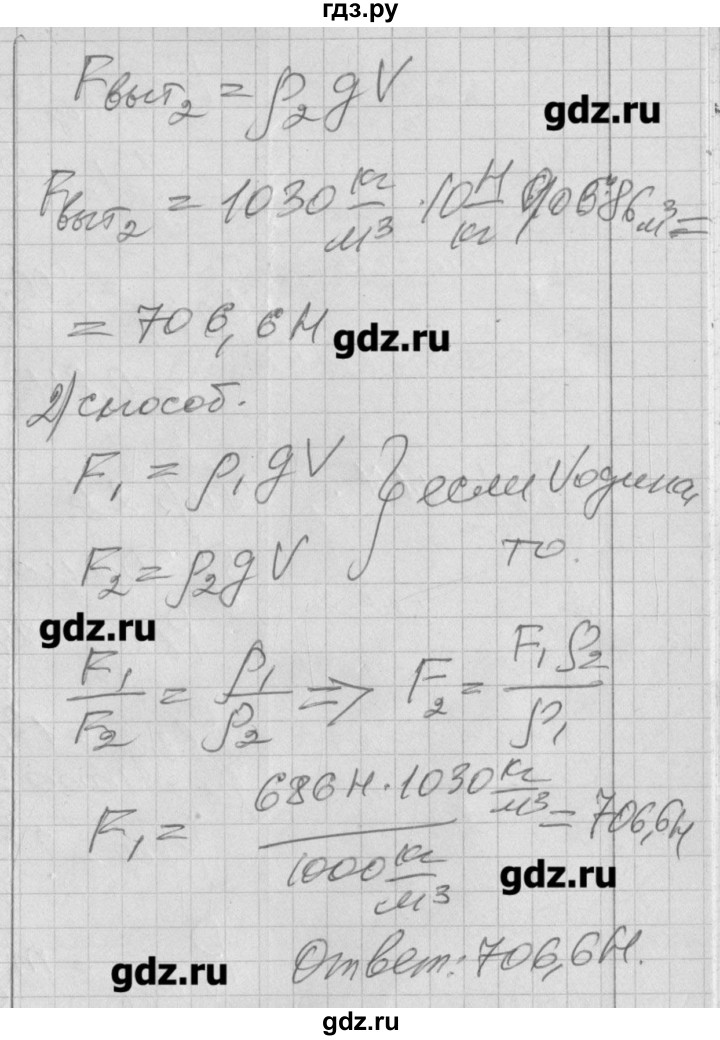 гдз.ру
Fвыт₂ = ρ₂gV
gdz.ru
Fвыт₂ = 1030 кг/м³ · 10 Н/кг · 0,0686 м³ =
= 706,6 Н
gdz.ru
2) способ.
F₁ = ρ₁gV } если V одина,
F₂ = ρ₂gV то.
gdz.ru
F₁/F₂ = ρ₁/ρ₂ => F₂ = F₁ρ₂/ρ₁
F₁ = 686 Н · 1030 кг/м³ / 1000 кг/м³ = 706,6 Н
gdz.ru
Ответ: 706,6 Н.
gdz.ru
gdz.ru